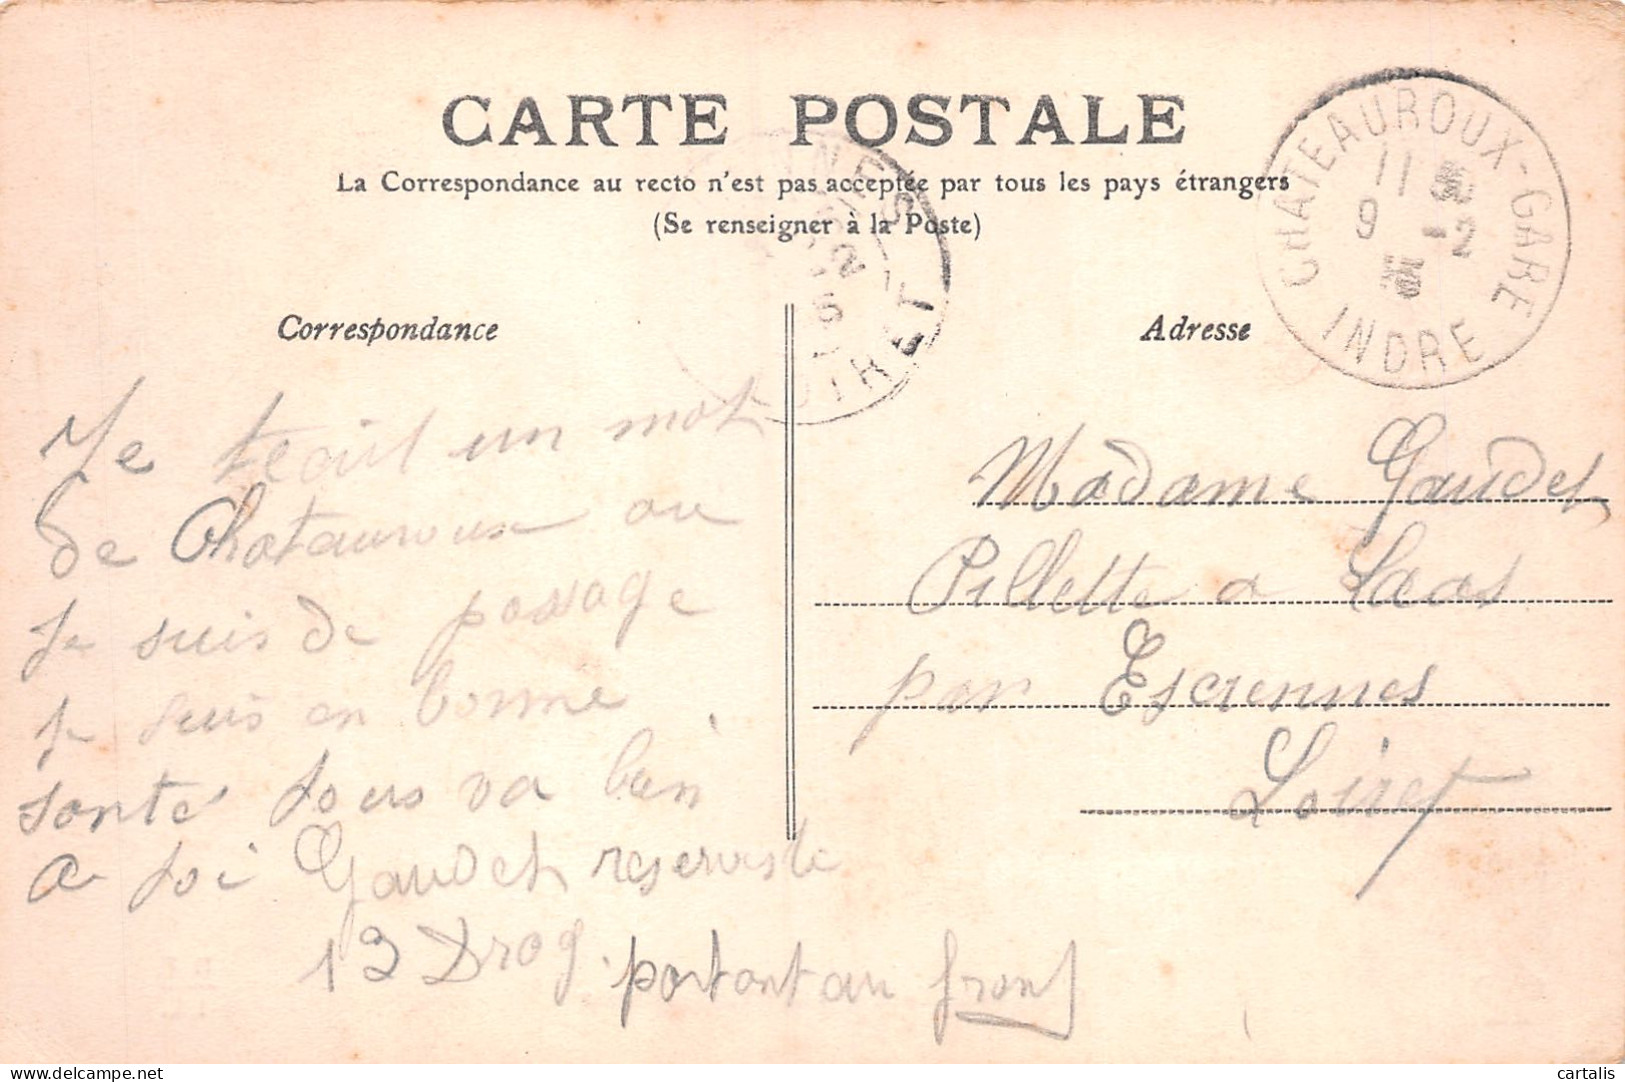 CARTE POSTALE
La Correspondance au recto n'est pas acceptée par tous les pays étrangers
(Se renseigner à la Poste)
CHATEAUROUX-GARE
11
9 -2
INDRE
LOIRET
Correspondance
Adresse
Je tecrit un mot
de Chatauroux ou
Je suis de passage
Je suis en bonne
sante tous va bien
a toi Gaudet reserviste
13 Drog. partant au front
Madame Gaudet
Pillette a Laas
par Escrennes
Loiret
cartalis